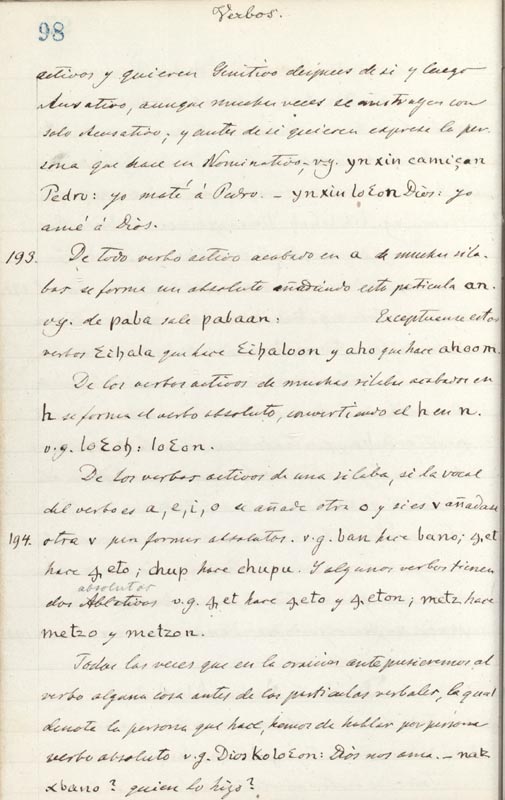 Verbos.
98
activos y quieren Genitivo despues de si y luego
Acusativo, aunque muchas veces se construyen con
solo Acusativo; y antes de si quieren exprese la per-
sona que hace en Nominativo, v.g. ynxin camiçan
Pedro: yo maté á Pedro. – ynxin loƐon Dios: yo
amé á Dios.
193. De todo verbo activo acabado en a de muchas sila-
bas se forma un absoluto añadiendo esta particula an.
v.g. de paba sale pabaan: Exceptuanse estos
verbos Ɛihala que hace Ɛihaloon y aho que hace ahoom.
De los verbos activos de muchas silabas acabados en
h se forma el verbo absoluto, convirtiendo el h en n.
v.g. loƐoh: loƐon.
De los verbos activos de una silaba, si la vocal
del verbo es a, e, i, o se añade otra o y si es v añadase
194. otra v para formar absolutos. v.g. ban hace bano; ꜭet
hace ꜭeto; chup hace chupu. Y algunos verbos tienen
absolutos
dos Ablativos v.g. ꜭet hace ꜭeto y ꜭeton; metz hace
metzo y metzon.
Todas las veces que en la oracion antepusieremos al
verbo alguna cosa antes de las particulas verbales, la qual
denota la persona que hace, hemos de hablar por
verbo absoluto v.g. Dios KoloƐon: Dios nos ama. – nak
xbano? quien lo hizo?